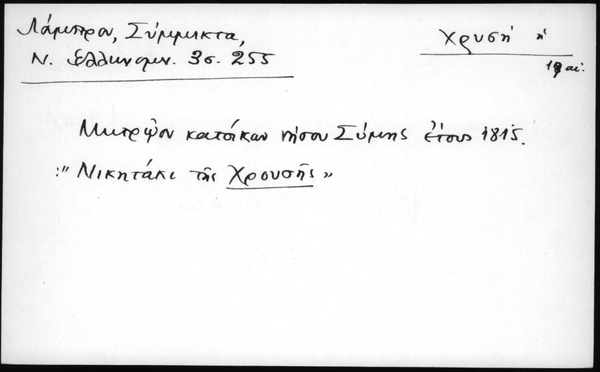 Λάμπρου, Σύμμικτα,
Ν. Ελληνομν. 3σ. 255
Χρυσή ἡ
19 αι.
Μητρῷον κατοίκων νήσου Σύμης ἔτους 1815.
:"Νικητάκι τῆς Χρουσῆς"